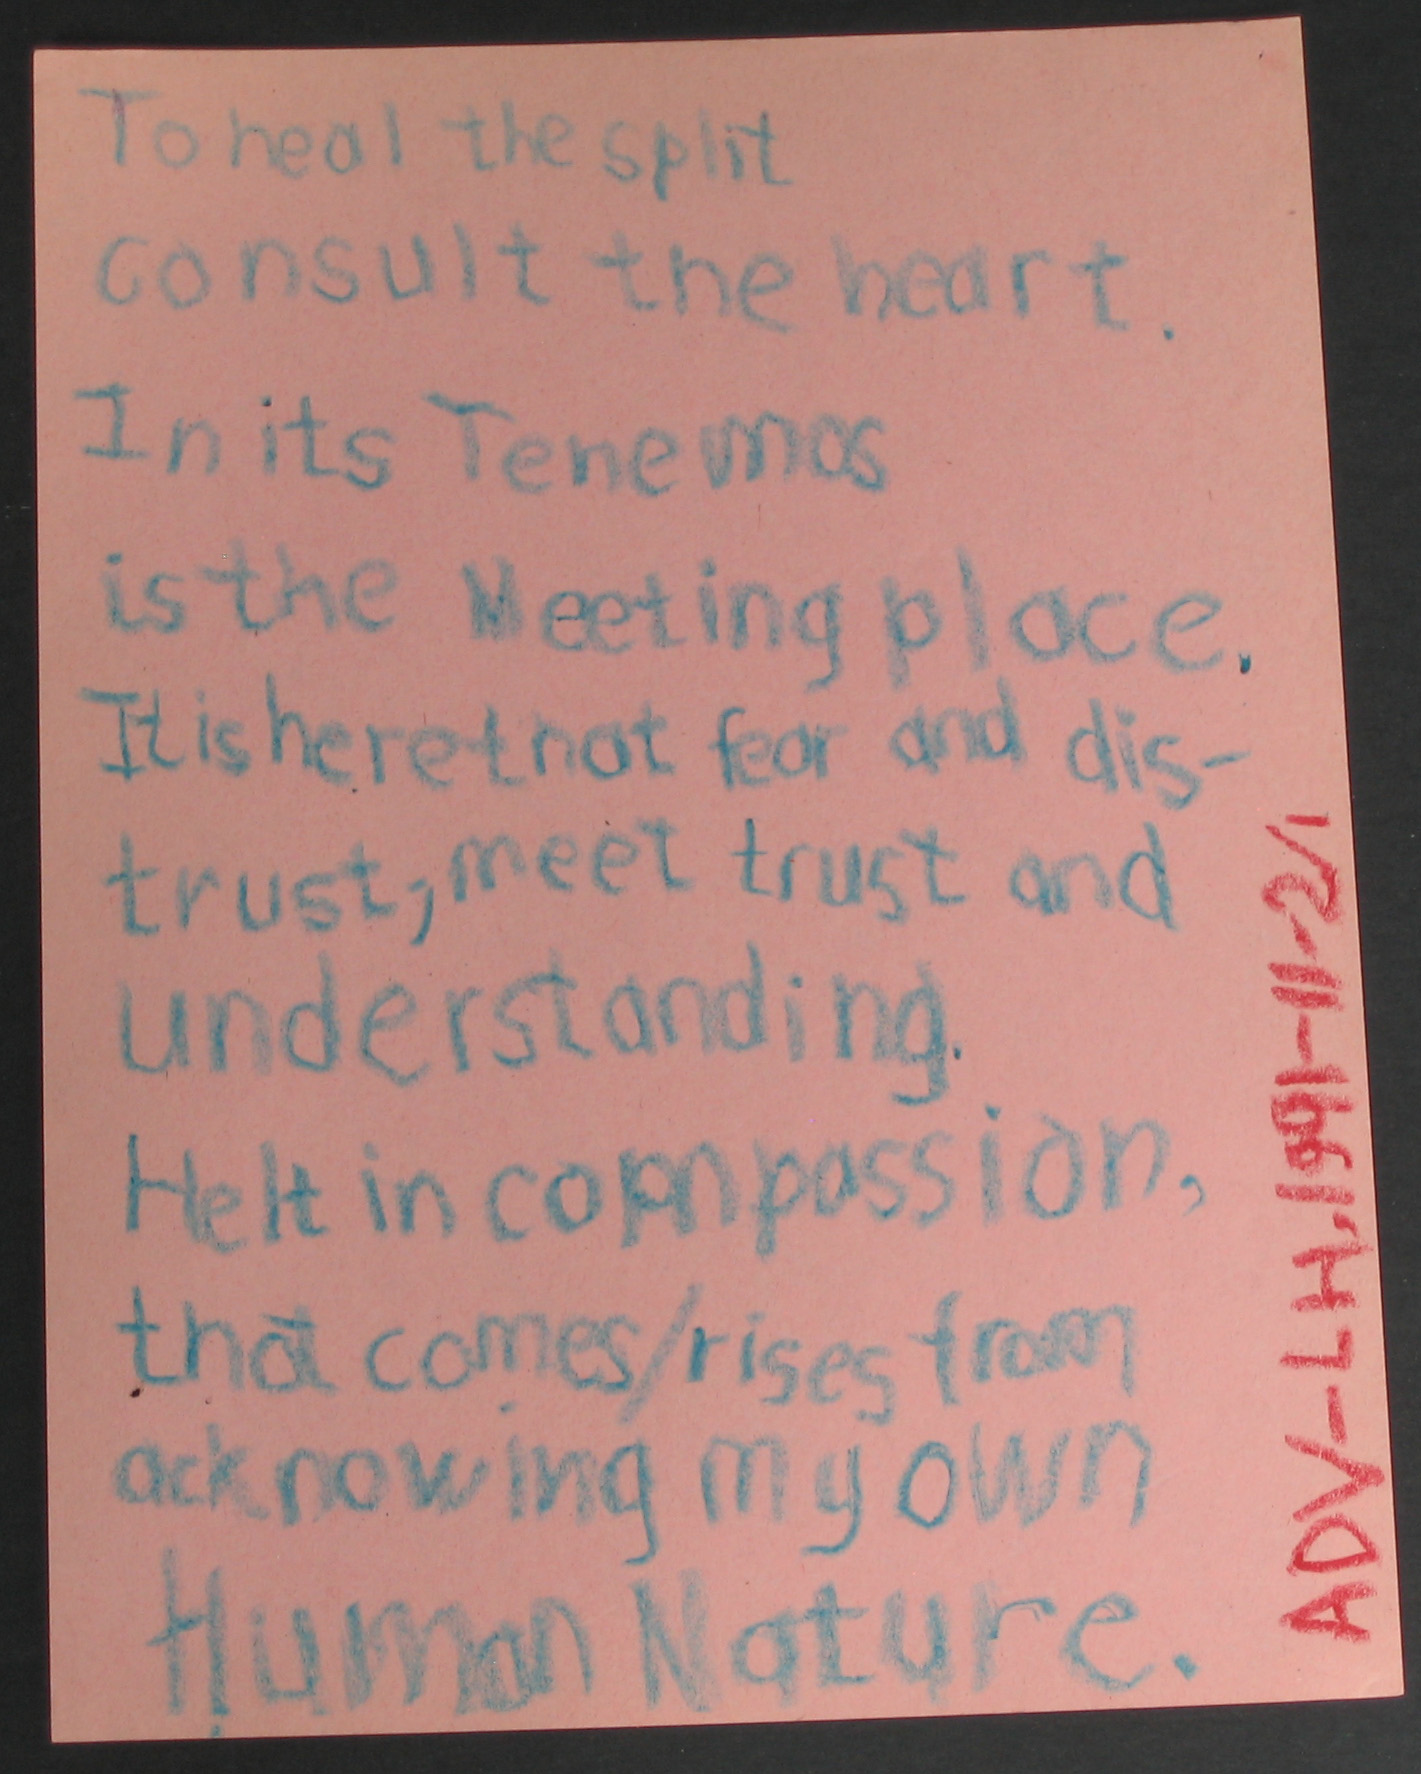 To heal the split
consult the heart.
In its Tenemos
is the Meeting place.
It is here that fear and dis-
trust, meet trust and
understanding.
Helt in compassion,
that comes/rises from
acknowing my own
Human Nature.
ADV-LH.1991-11-2/1